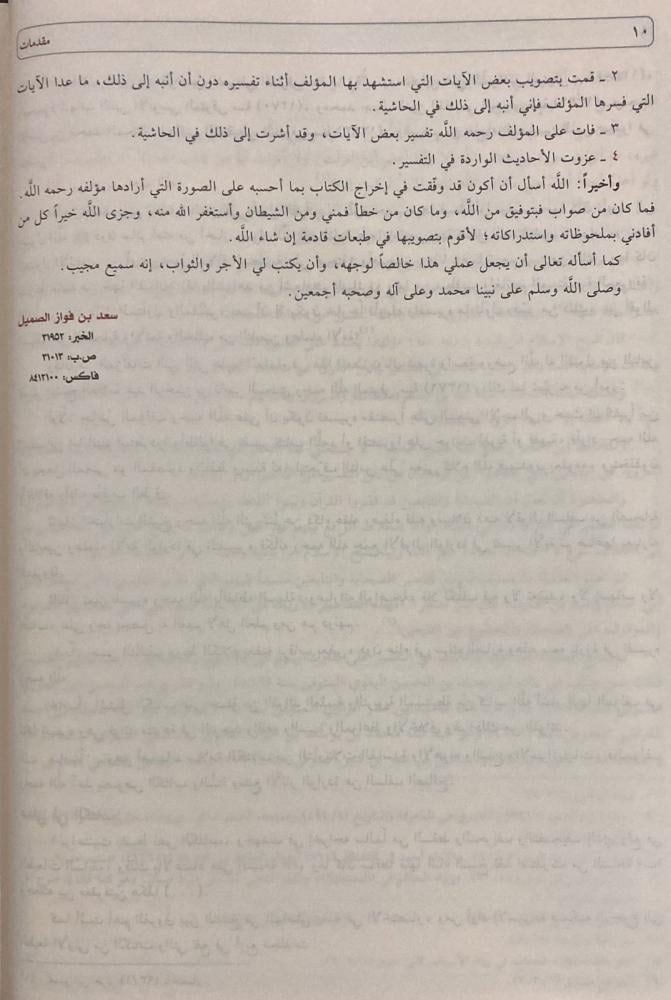 ١٠
مقدمات
٢ ـ قمت بتصويب بعض الآيات التي استشهد بها المؤلف أثناء تفسيره دون أن أنبه إلى ذلك، ما عدا الآيات
التي فسرها المؤلف فإني أنبه إلى ذلك في الحاشية.
٣ ـ فات على المؤلف رحمه اللَّه تفسير بعض الآيات، وقد أشرت إلى ذلك في الحاشية.
٤ ـ عزوت الأحاديث الواردة في التفسير.
وأخيراً: اللَّه أسأل أن أكون قد وفّقت في إخراج الكتاب بما أحسبه على الصورة التي أرادها مؤلفه رحمه اللَّه.
فما كان من صواب فبتوفيق من اللَّه، وما كان من خطأ فمني ومن الشيطان وأستغفر الله منه، وجزى اللَّه خيراً كل من
أفادني بملحوظاته واستدراكاته؛ لأقوم بتصويبها في طبعات قادمة إن شاء اللَّه.
كما أسأله تعالى أن يجعل عملي هذا خالصاً لوجهه، وأن يكتب لي الأجر والثواب، إنه سميع مجيب.
وصلى اللَّه وسلم على نبينا محمد وعلى آله وصحبه أجمعين.
سعد بن فواز الصميل
الخبر: ٣١٩٥٢
ص.ب: ٣١٠١٣
فاكس: ٨٤١٢١٠٠